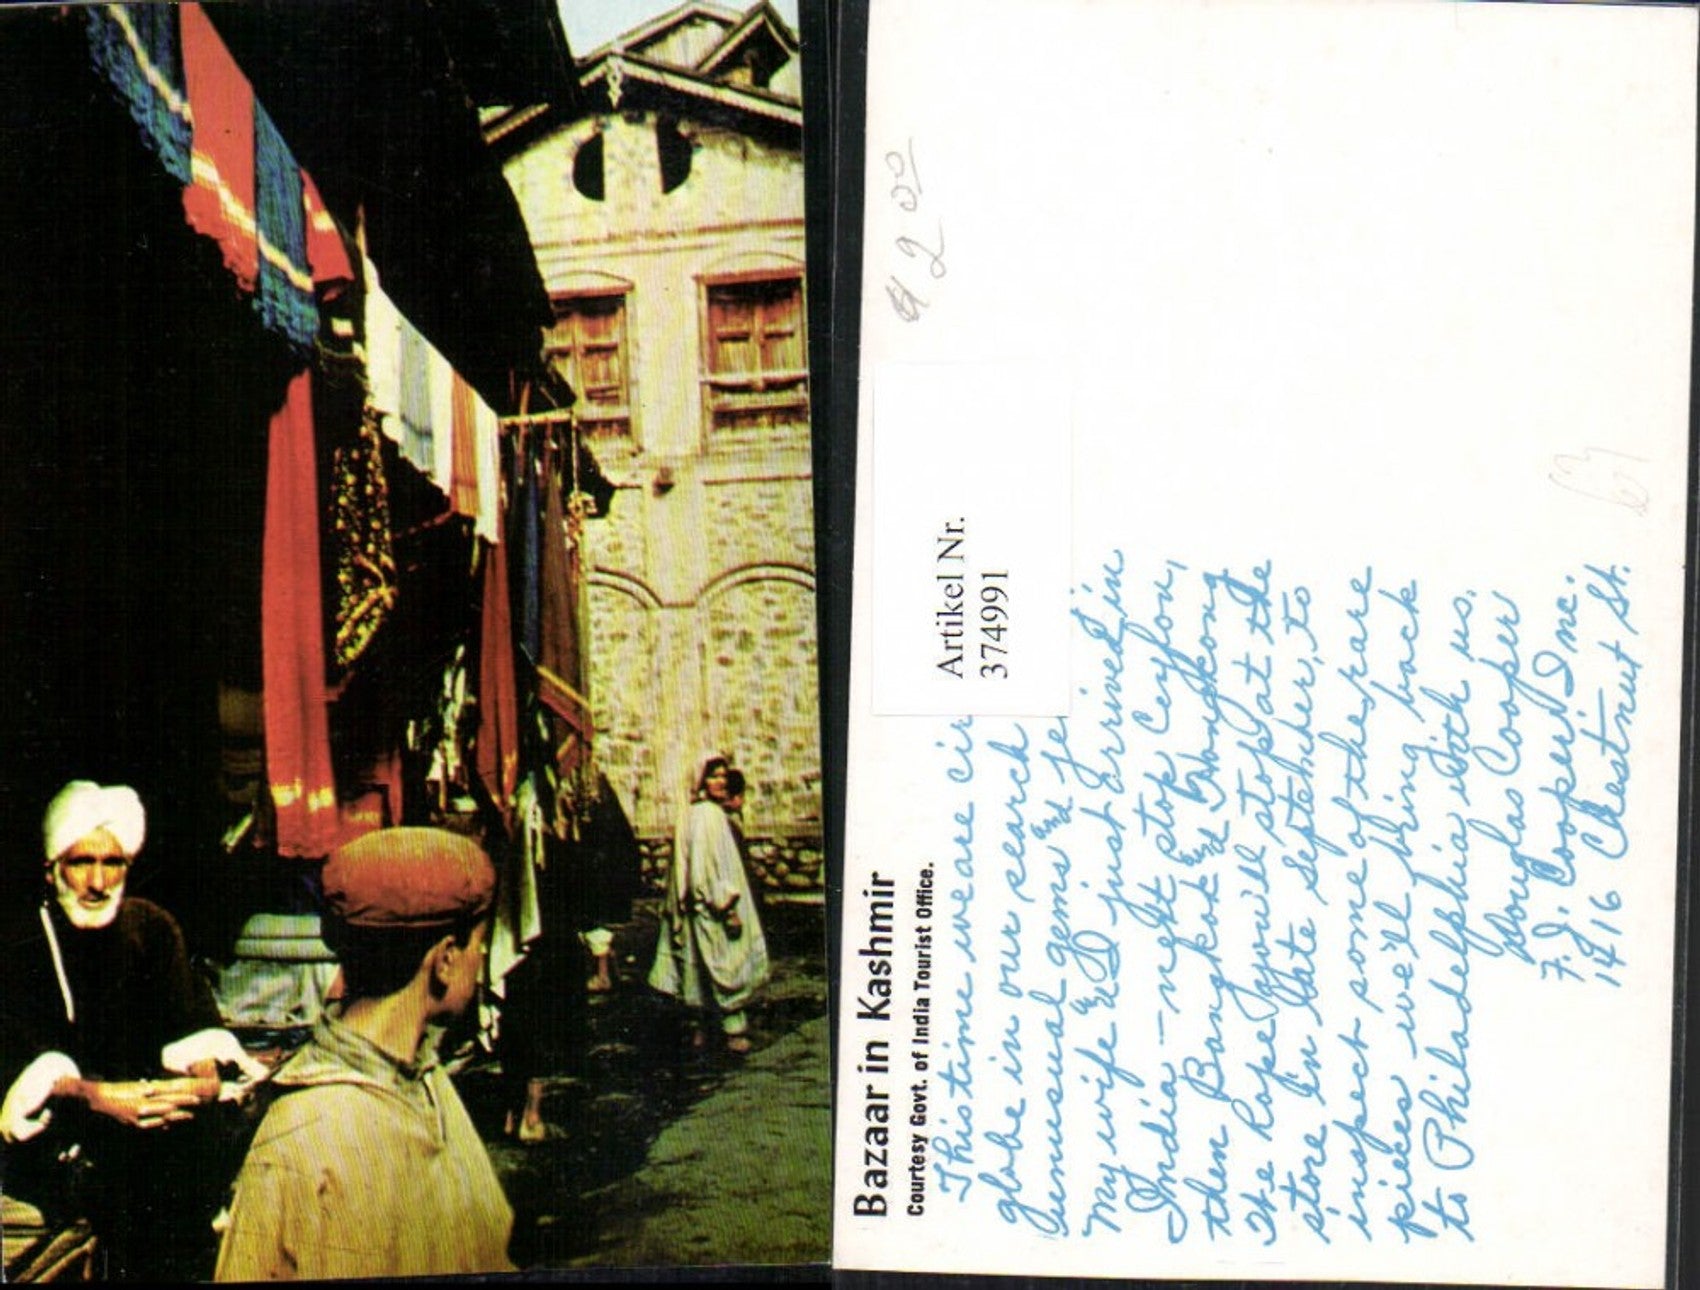 Bazaar in Kashmir
Courtesy Govt. of India Tourist Office.
This time we are cir
globe in our search
unusual gems and je
My wife and I just arrived in
India - next stop Ceylon,
then Bangkok and Hongkong
We hope you'll stop at the
store in late September, to
inspect some of the rare
pieces we'll bring back
to Philadelphia with us.
Douglas Cooper
F. J. Cooper Inc.
1416 Chestnut St.
Artikel Nr.
374991
2 00